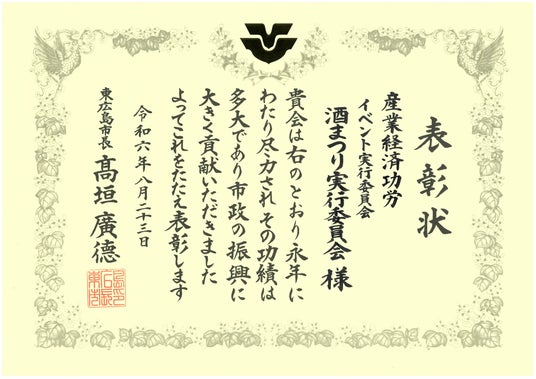 表彰状
産業経済功労
イベント実行委員会
酒まつり実行委員会 様
貴会は右のとおり永年に
わたり尽力されその功績は
多大であり市政の振興に
大きく貢献いただきました
よってこれをたたえ表彰します
令和六年八月二十三日
東広島市長 髙垣廣德